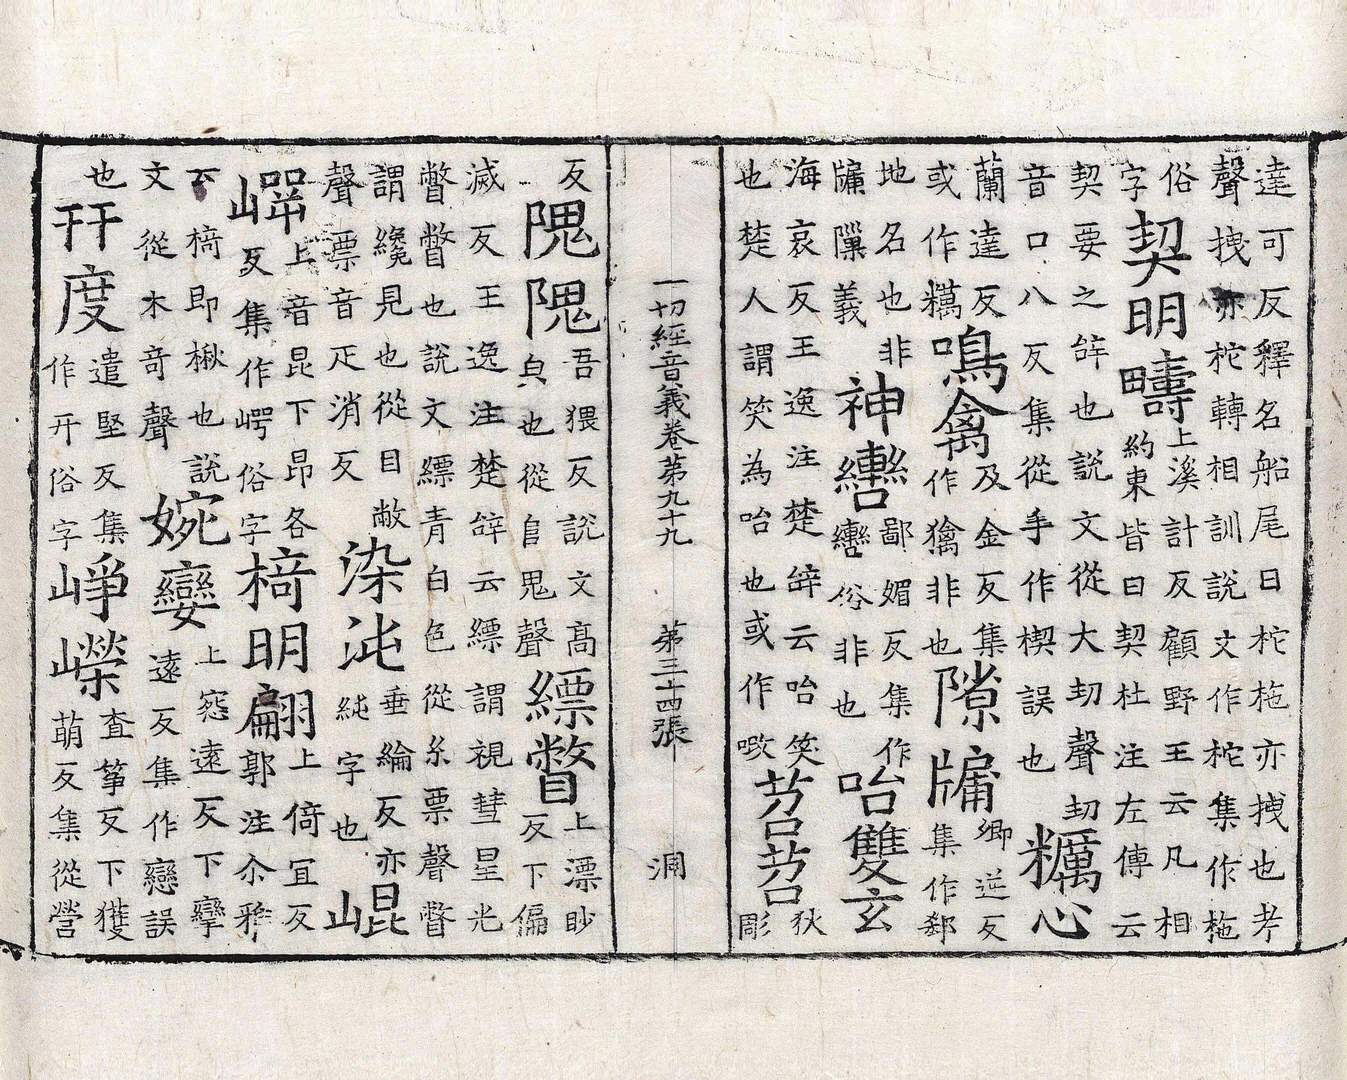 達可反釋名船尾曰柁拖亦拽也考
聲拽亦柁轉相訓説文作柁集作拖
俗
字
契明疇
上溪計反顧野王云凡相
約束皆曰契杜注左傳云
契要之辝也説文從大㓞聲㓞
音口八反集從手作楔誤也
糲心
蘭達反
或作糲
鳴禽
及金反集
作擒非也
隙牖
卿逆反
集作郄
地名也非
牖隟義
神轡
鄙媚反集作
轡俗非也
咍雙玄
海哀反王逸注楚辝云咍笑
也楚人謂笑為咍也或作
苕苕
狄
彫
一切經音義卷苐九十九 苐三十四張 洞
反
隗隗
吾猥反説文高
㒵也從𨸏鬼聲
縹瞥
上漂眇
反下偏
滅反王逸注楚辝云縹謂視彗星光
瞥瞥也説文縹青白色從糸票聲瞥
謂纔見也從目敝
聲票音疋消反
染泚
垂綸反亦
純字也
崐㟧
上音昆下昂各
反集作崿俗字
椅明翮
上倚冝反
郭注尒雅
下椅即楸也説
文從木奇聲
婉孌
上惌遠反下攣
遠反集作戀誤
也
幵度
遣堅反集
作开俗字
崢嶸
查箏反下獲
萌反集從營